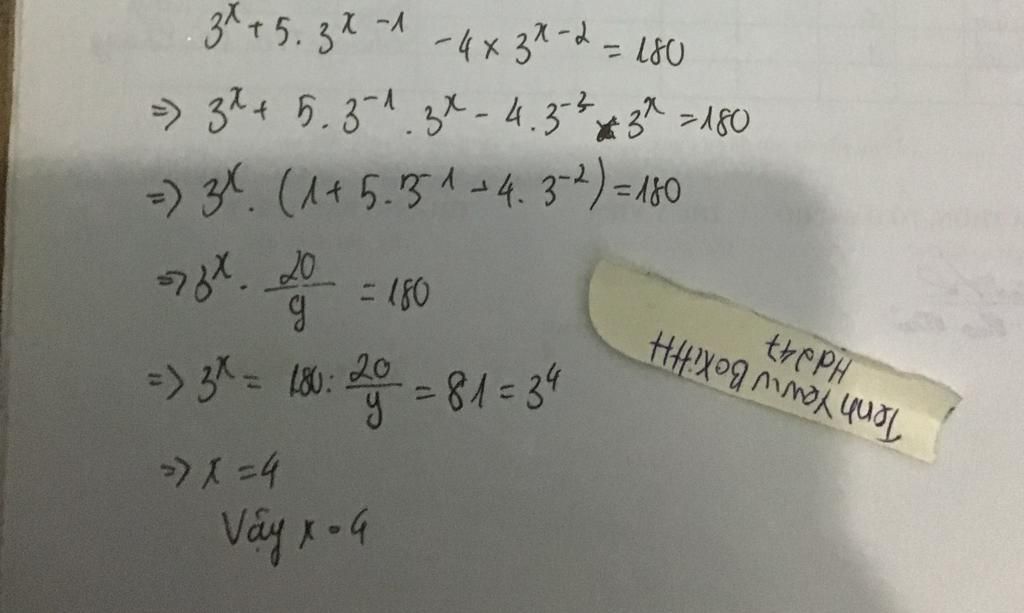 3^x + 5 . 3^{x-1} - 4 × 3^{x-2} = 180
=> 3^x + 5 . 3^{-1} . 3^x - 4 . 3^{-2} × 3^x = 180
=> 3^x . (1 + 5 . 3^{-1} - 4 . 3^{-2}) = 180
=> 3^x . 20/9 = 180
=> 3^x = 180 : 20/9 = 81 = 3^4
=> x = 4
Vậy x = 4
Hda47